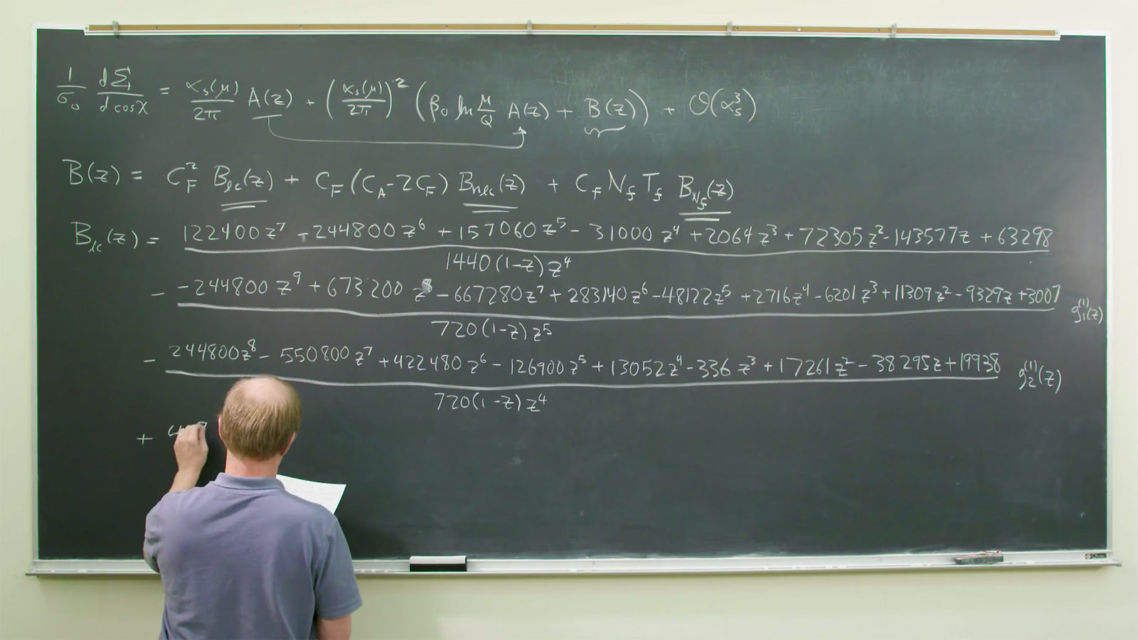 1/σ₀ dΣ/dcosχ = αₛ(μ)/2π A(z) + (αₛ(μ)/2π)² (β₀ ln μ/Q A(z) + B(z)) + O(αₛ³)
B(z) = C_F² B_lc(z) + C_F (C_A - 2C_F) B_nlc(z) + C_F N_f T_f B_{N_f}(z)
B_lc(z) = 122400z⁷ - 244800z⁶ + 157060z⁵ - 31000z⁴ + 2064z³ + 72305z² - 143577z + 63298
1440(1-z)z⁴
- -244800z⁹ + 673200z⁸ - 667280z⁷ + 283140z⁶ - 48122z⁵ + 2716z⁴ - 6201z³ + 11309z² - 9329z + 3007 g₁⁽¹⁾(z)
720(1-z)z⁵
- 244800z⁸ - 550800z⁷ + 422480z⁶ - 126900z⁵ + 13052z⁴ - 336z³ + 17261z² - 38295z + 19938 g₂⁽¹⁾(z)
720(1-z)z⁴
+ 4